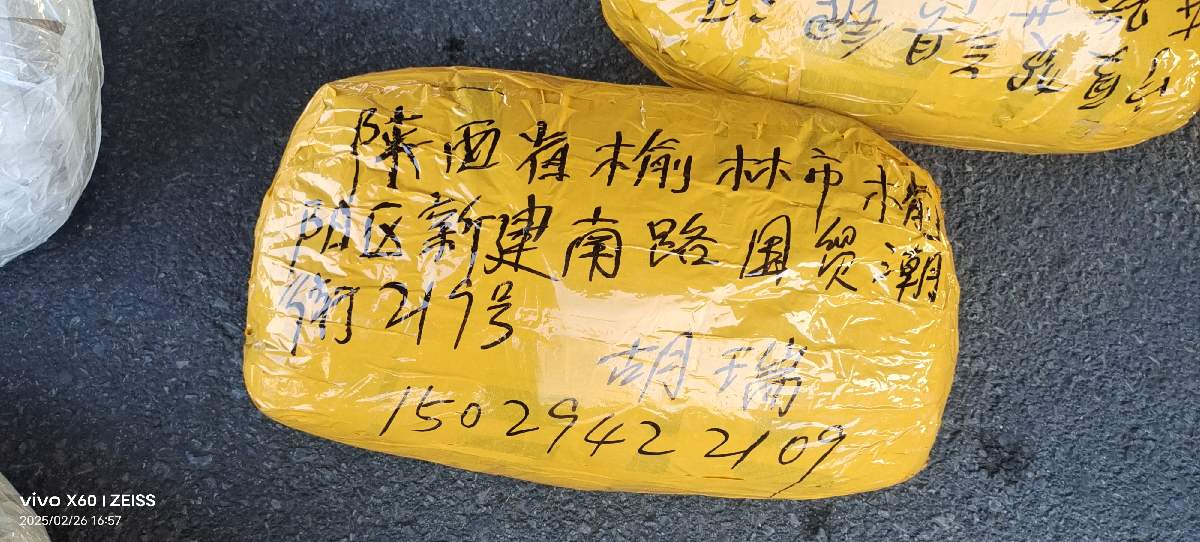 陕西省榆林市榆
阳区新建南路国贸潮
街219号
胡瑞
15029422109
vivo X60 | ZEISS
2025/02/26 16:57